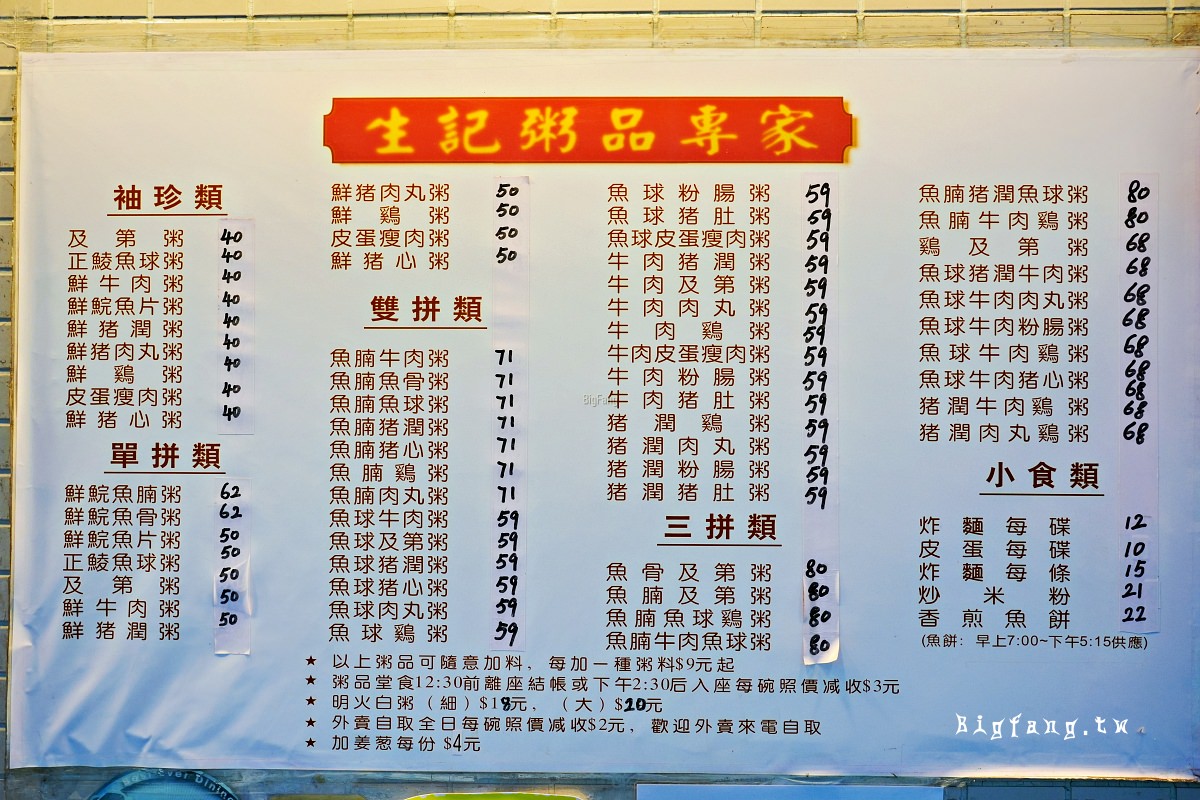 生記粥品專家
袖珍類
及第粥 40
正鯪魚球粥 40
鮮牛肉粥 40
鮮鯇魚片粥 40
鮮猪潤粥 40
鮮猪肉丸粥 40
鮮鷄粥 40
皮蛋瘦肉粥 40
鮮猪心粥 40
單拼類
鮮鯇魚腩粥 62
鮮鯇魚骨粥 62
鮮鯇魚片粥 50
正鯪魚球粥 50
及第粥 50
鮮牛肉粥 50
鮮猪潤粥 50
鮮猪肉丸粥 50
鮮鷄粥 50
皮蛋瘦肉粥 50
鮮猪心粥 50
雙拼類
魚腩牛肉粥 71
魚腩魚骨粥 71
魚腩魚球粥 71
魚腩猪潤粥 71
魚腩猪心粥 71
魚腩鷄粥 71
魚腩肉丸粥 71
魚球牛肉粥 59
魚球及第粥 59
魚球猪潤粥 59
魚球猪心粥 59
魚球肉丸粥 59
魚球鷄粥 59
魚球粉腸粥 59
魚球猪肚粥 59
魚球皮蛋瘦肉粥 59
牛肉猪潤粥 59
牛肉及第粥 59
牛肉肉丸粥 59
牛肉鷄粥 59
牛肉皮蛋瘦肉粥 59
牛肉粉腸粥 59
牛肉猪肚粥 59
猪潤鷄粥 59
猪潤肉丸粥 59
猪潤粉腸粥 59
猪潤猪肚粥 59
三拼類
魚骨及第粥 80
魚腩及第粥 80
魚腩魚球鷄粥 80
魚腩牛肉魚球粥 80
魚腩猪潤魚球粥 80
魚腩牛肉鷄粥 80
鷄及第粥 68
魚球猪潤牛肉粥 68
魚球牛肉肉丸粥 68
魚球牛肉粉腸粥 68
魚球牛肉鷄粥 68
魚球牛肉猪心粥 68
猪潤牛肉鷄粥 68
猪潤肉丸鷄粥 68
小食類
炸麵每碟 12
皮蛋每碟 10
炸麵每條 15
炒米粉 21
香煎魚餅 22
(魚餅：早上7:00~下午5:15供應)
★ 以上粥品可隨意加料，每加一種粥料$9元起
★ 粥品堂食12:30前離座結帳或下午2:30后入座每碗照價减收$3元
★ 明火白粥（細）$18元，（大）$20元
★ 外賣自取全日每碗照價减收$2元，歡迎外賣來電自取
★ 加姜葱每份 $4元
BigFang
Bigfang.tw